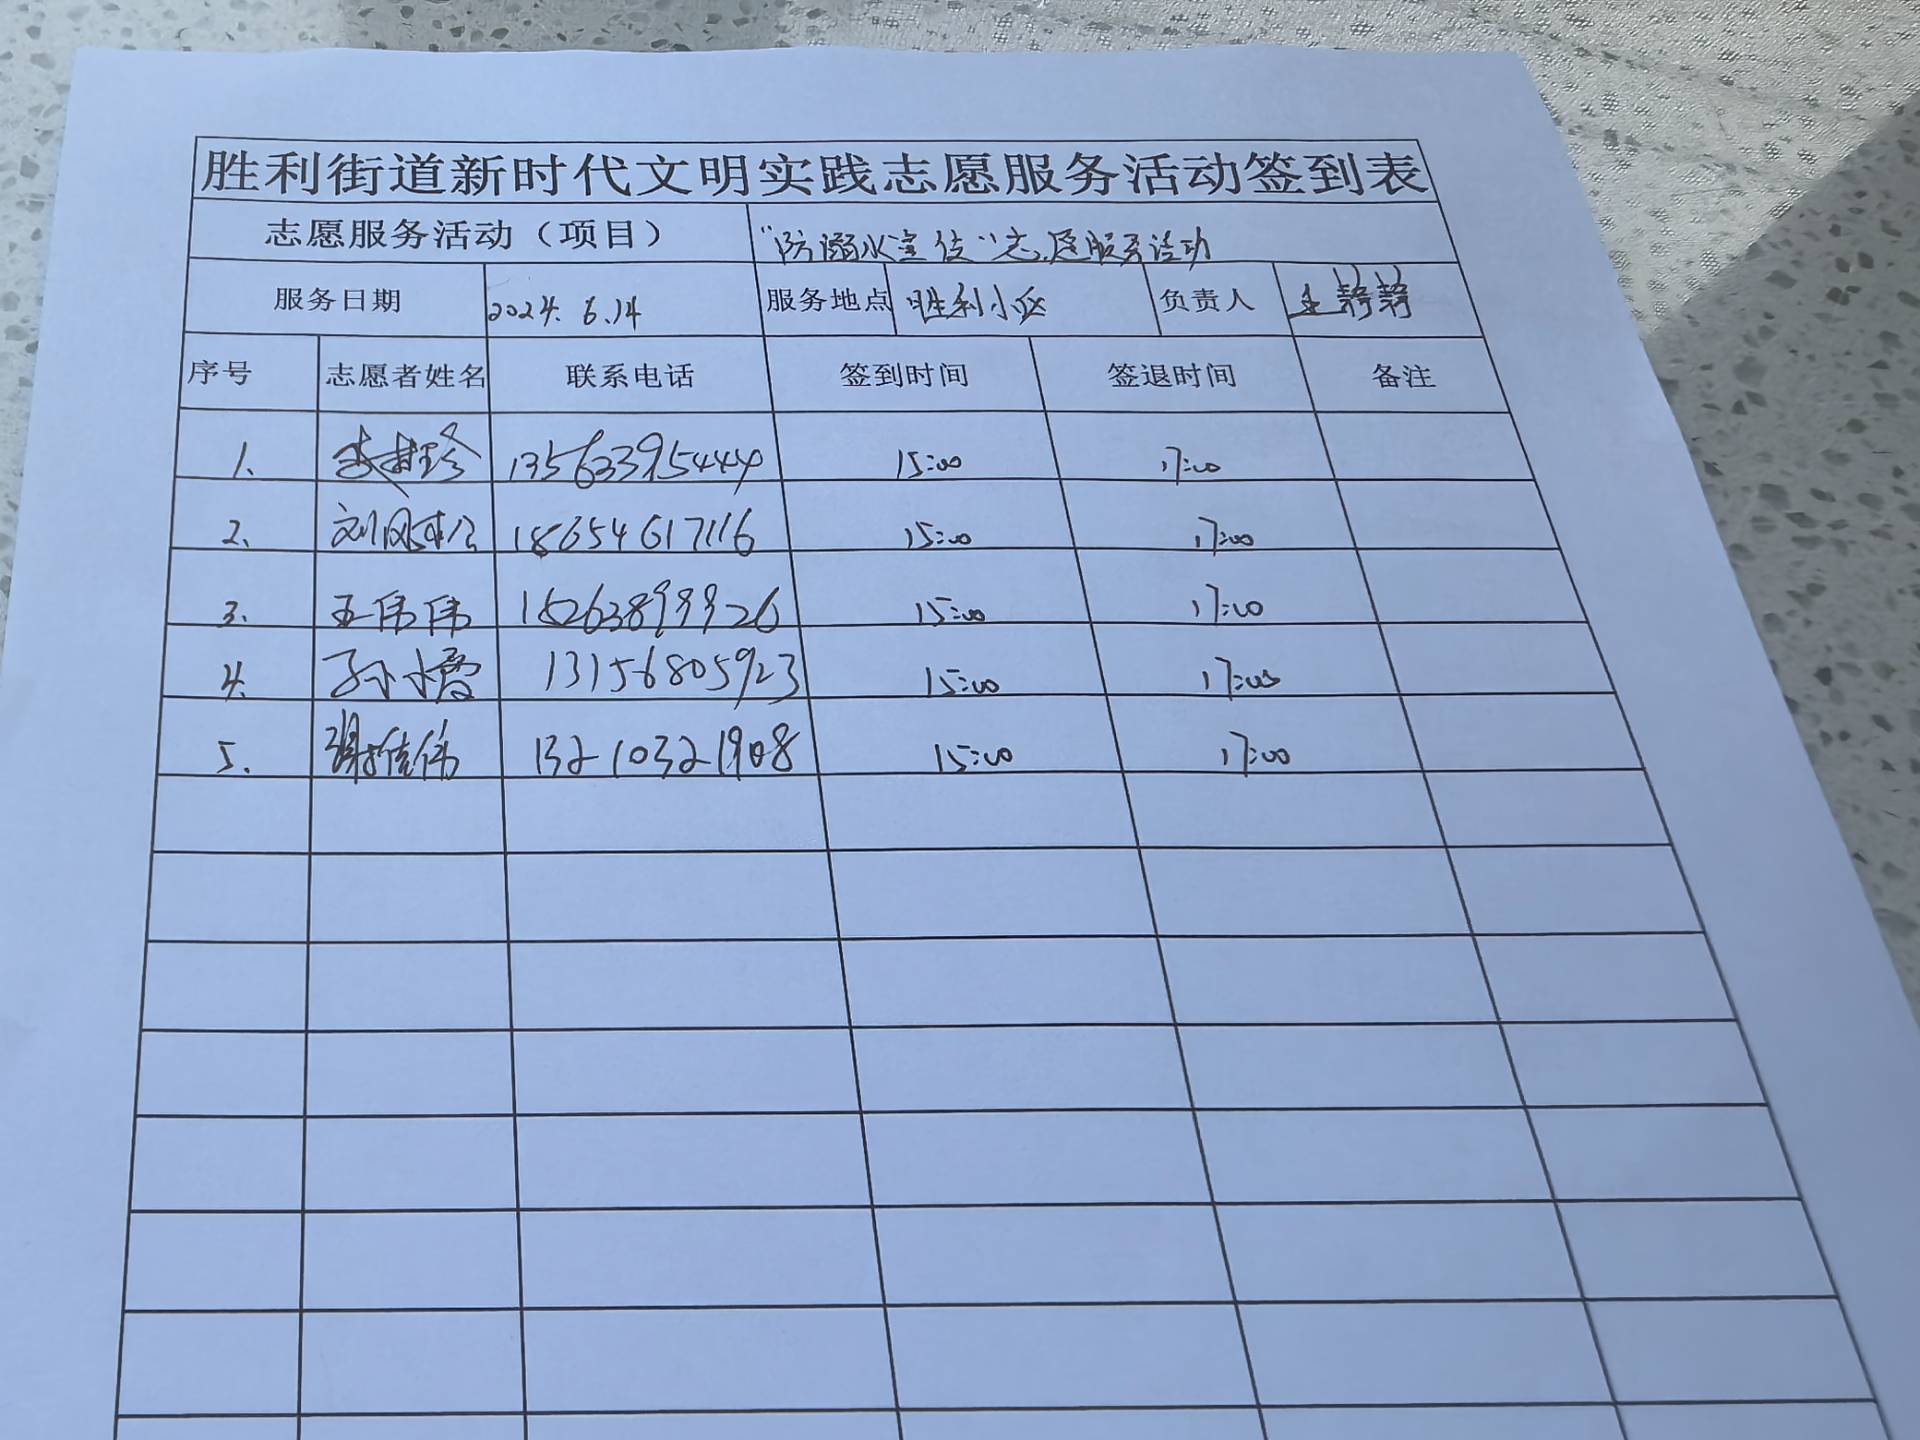 胜利街道新时代文明实践志愿服务活动签到表
志愿服务活动（项目） “防溺水宣传”志愿服务活动
服务日期 2024.6.14 服务地点 胜利小区 负责人 王静静
序号 志愿者姓名 联系电话 签到时间 签退时间 备注
1. 13563395444 15:00 17:00
2. 刘 18654617116 15:00 17:00
3. 王伟伟 15263899926 15:00 17:00
4. 孙小霞 13156805923 15:00 17:00
5. 谢佳伟 13210321908 15:00 17:00